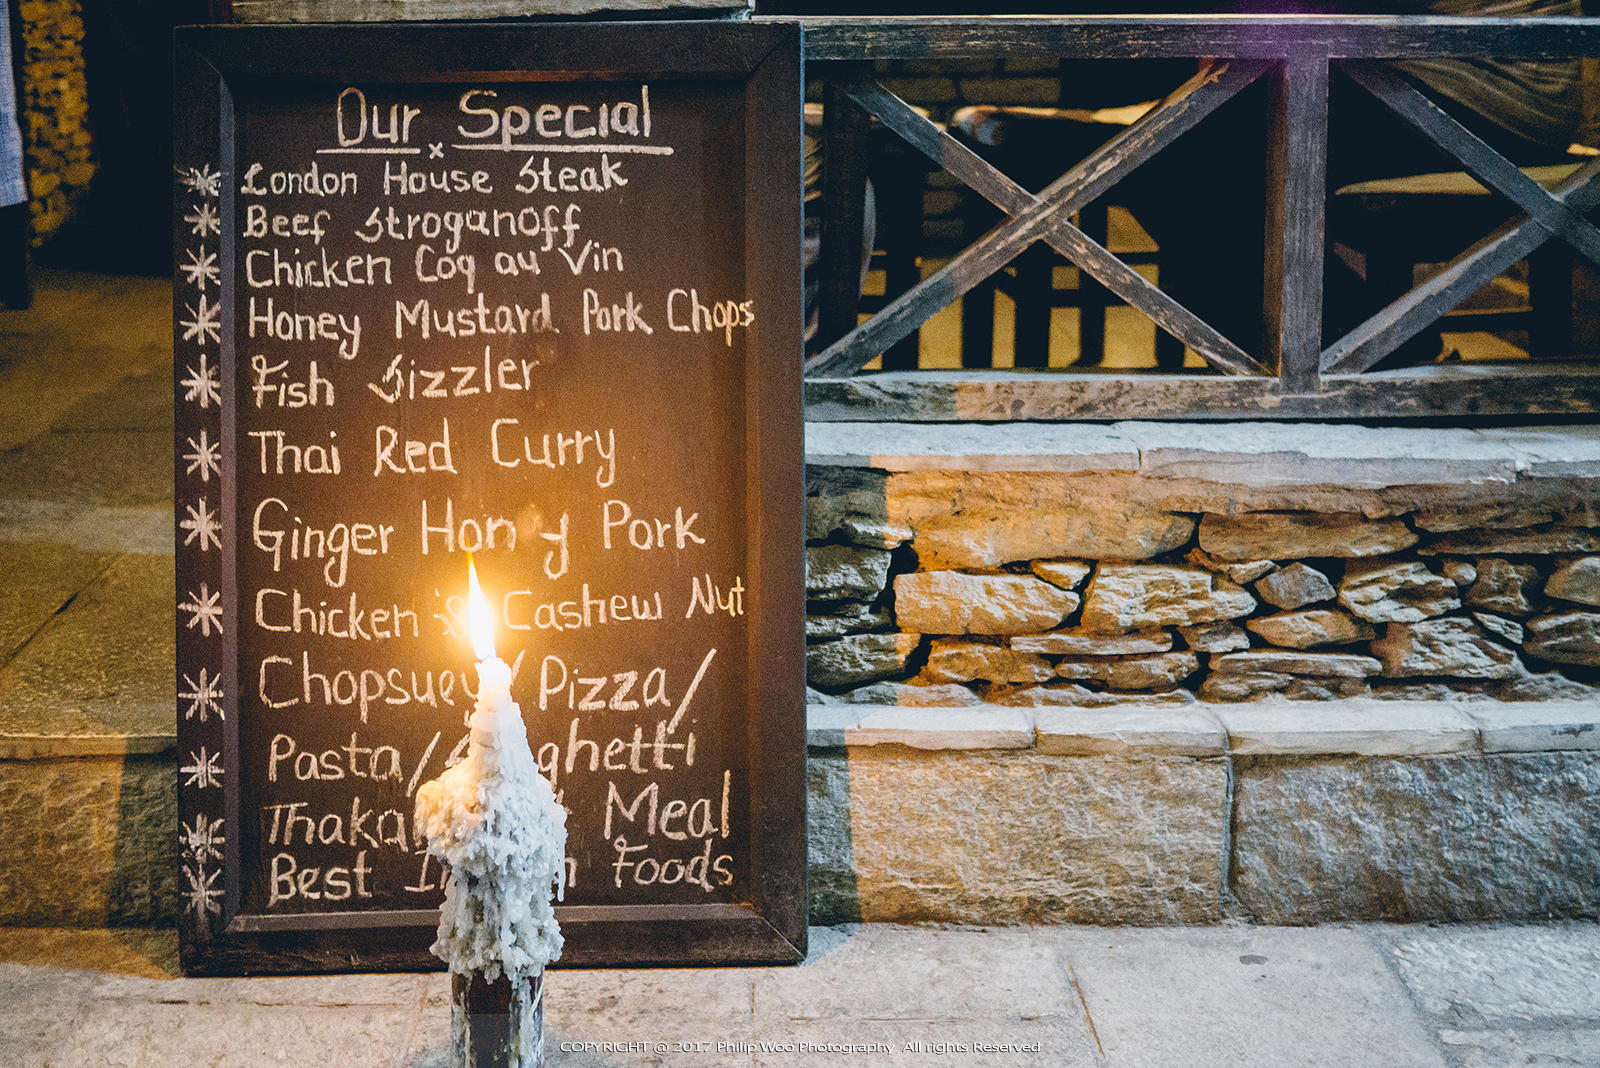 Our Special
London House Steak
Beef Stroganoff
Chicken Coq au Vin
Honey Mustard Pork Chops
Fish Sizzler
Thai Red Curry
Ginger Pork
Chicken & Cashew Nut
Chopsuey/Pizza/
Pasta/
Meal
Best Foods
COPYRIGHT @ 2017 Philip Woo Photography All rights Reserved